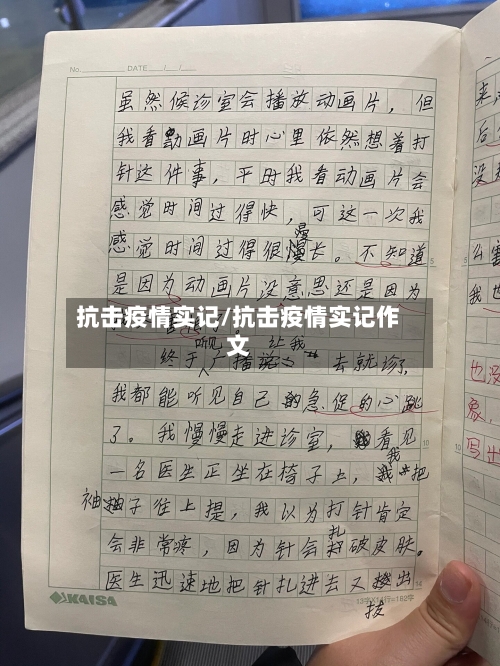 No. DATE / /
虽然候诊室会播放动画片，但
我看动画片时心里依然想着打
针这件事，平时我看动画片会
感觉时间过得快，可这一次我
感觉时间过得很漫长。不知道
是因为动画片没意思还是因为
抗击疫情实记/抗击疫情实记作
文
听见 让我
终于广播 去就诊了
我都能听见自己的急促的心跳
了。我慢慢走进诊室，看见
一名医生正坐在椅子上，我把
袖子往上提，我以为打针肯定
会非常疼，因为针会扎破皮肤。
医生迅速地把针扎进去又拔出
KAISA
13字X14行=182字
来
后
没
公
我
也没
象，
写出